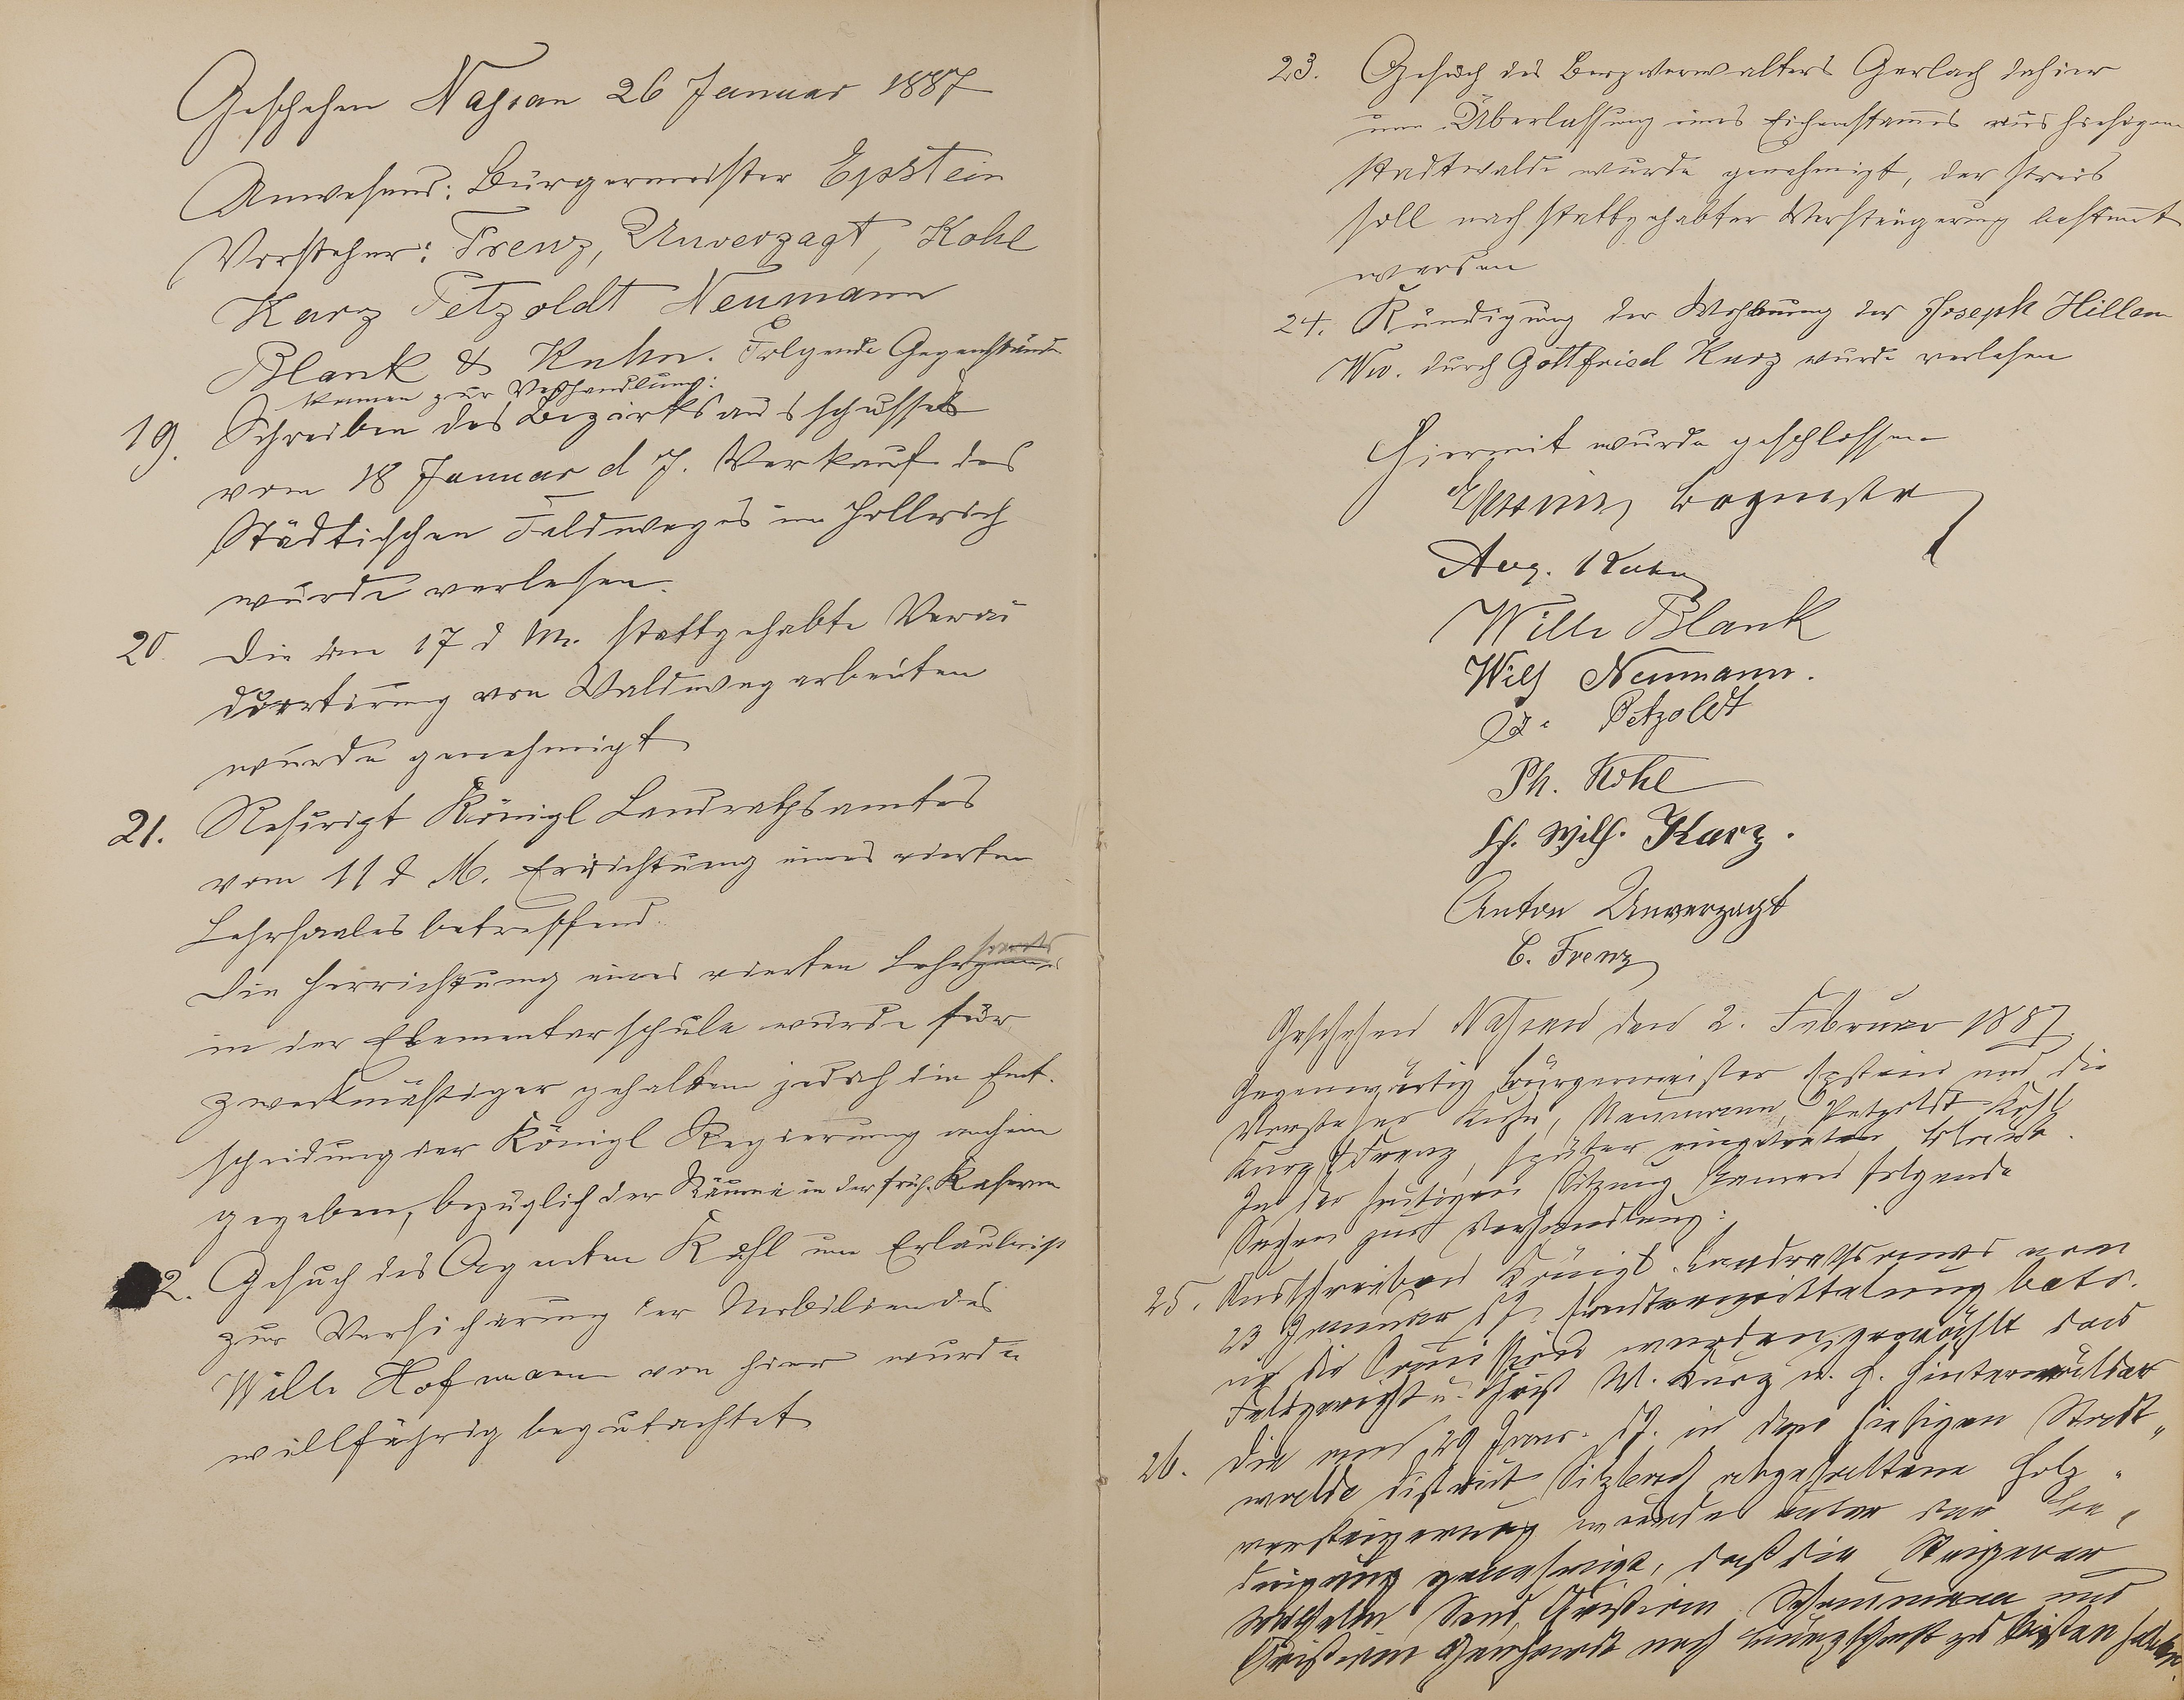 Geschehen Nassau 26 Januar 1887
Anwesend: Bürgermeister Epstein
Vorsteher: Frenz, Unverzagt, Kohl
Kurz Petzoldt Neumann
Blank & Kuhn. Folgende Gegenstände
kamen zur Verhandlung:
19. Schreiben des Bezirksausschusses
vom 18 Januar d J. Verkauf des
Städtischen Feldweges im Hollerich
wurde verlesen.
20. Die den 17 d M. stattgehabte Verac
cordirung von Waldwegarbeiten
wurde genehmigt
21. Rescript Königl Landrathsamtes
vom 11 d M. Errichtung eines vierten
Lehrsaales betreffend.
Die Herrichtung eines vierten Lehrsaales
in der Elementarschule wurde für
zweckmäßiger gehalten jedoch die Ent-
scheidung der Königl Regierung anheim
gegeben, bezüglich der Räume in der früh. Kaserne
22. Gesuch des Agenten Kohl um Erlaubniß
zur Versicherung der Mobilien des
Wilh Hofmann von hier wurde
willfährig begutachtet
23. Gesuch des Bergverwalters Gerlach dahier
um Überlassung eines Eichenstammes aus hiesigem
Stadtwalde wurde genehmigt, der Preis
soll nach stattgehabter Versteigerung bestimmt
werden
24. Kündigung der Wohnung der Joseph Hillen
Ww. durch Gottfried Kurz wurde verlesen
Hiermit wurde geschlossen
Epstein Bgrmstr
Aug. Kuhn
Wilh Blank
Wilh Neumann.
Petzoldt
Ph. Kohl
Wilh. Kurz.
Anton Unverzagt
C. Frenz
Geschehen Nassau den 2. Februar 1887.
Gegenwärtig Bürgermeister Epstein und die
Vorsteher Kuhn, Neumann, Petzoldt Kohl
Kurz & Frenz, später eingetreten Blank.
In der heutigen Sitzung kamen folgende
Sachen zur Verhandlung:
25. Ausschreiben Königl. Landrathsamts vom
23 Januar d J. betr.
in die Commission wurden gewählt das
Feldgericht u. W. Kurz u. H. Hinterwälder
26. Die am 26 Janr. d J. in dem hiesigen Stadt-
walde District Sitzbach abgehaltene Holz-
versteigerung wurde unter der Be-
dingung genehmigt, daß die Steigerer
Wilhelm Christian und
Christian noch Bürgschaft zu leisten haben.